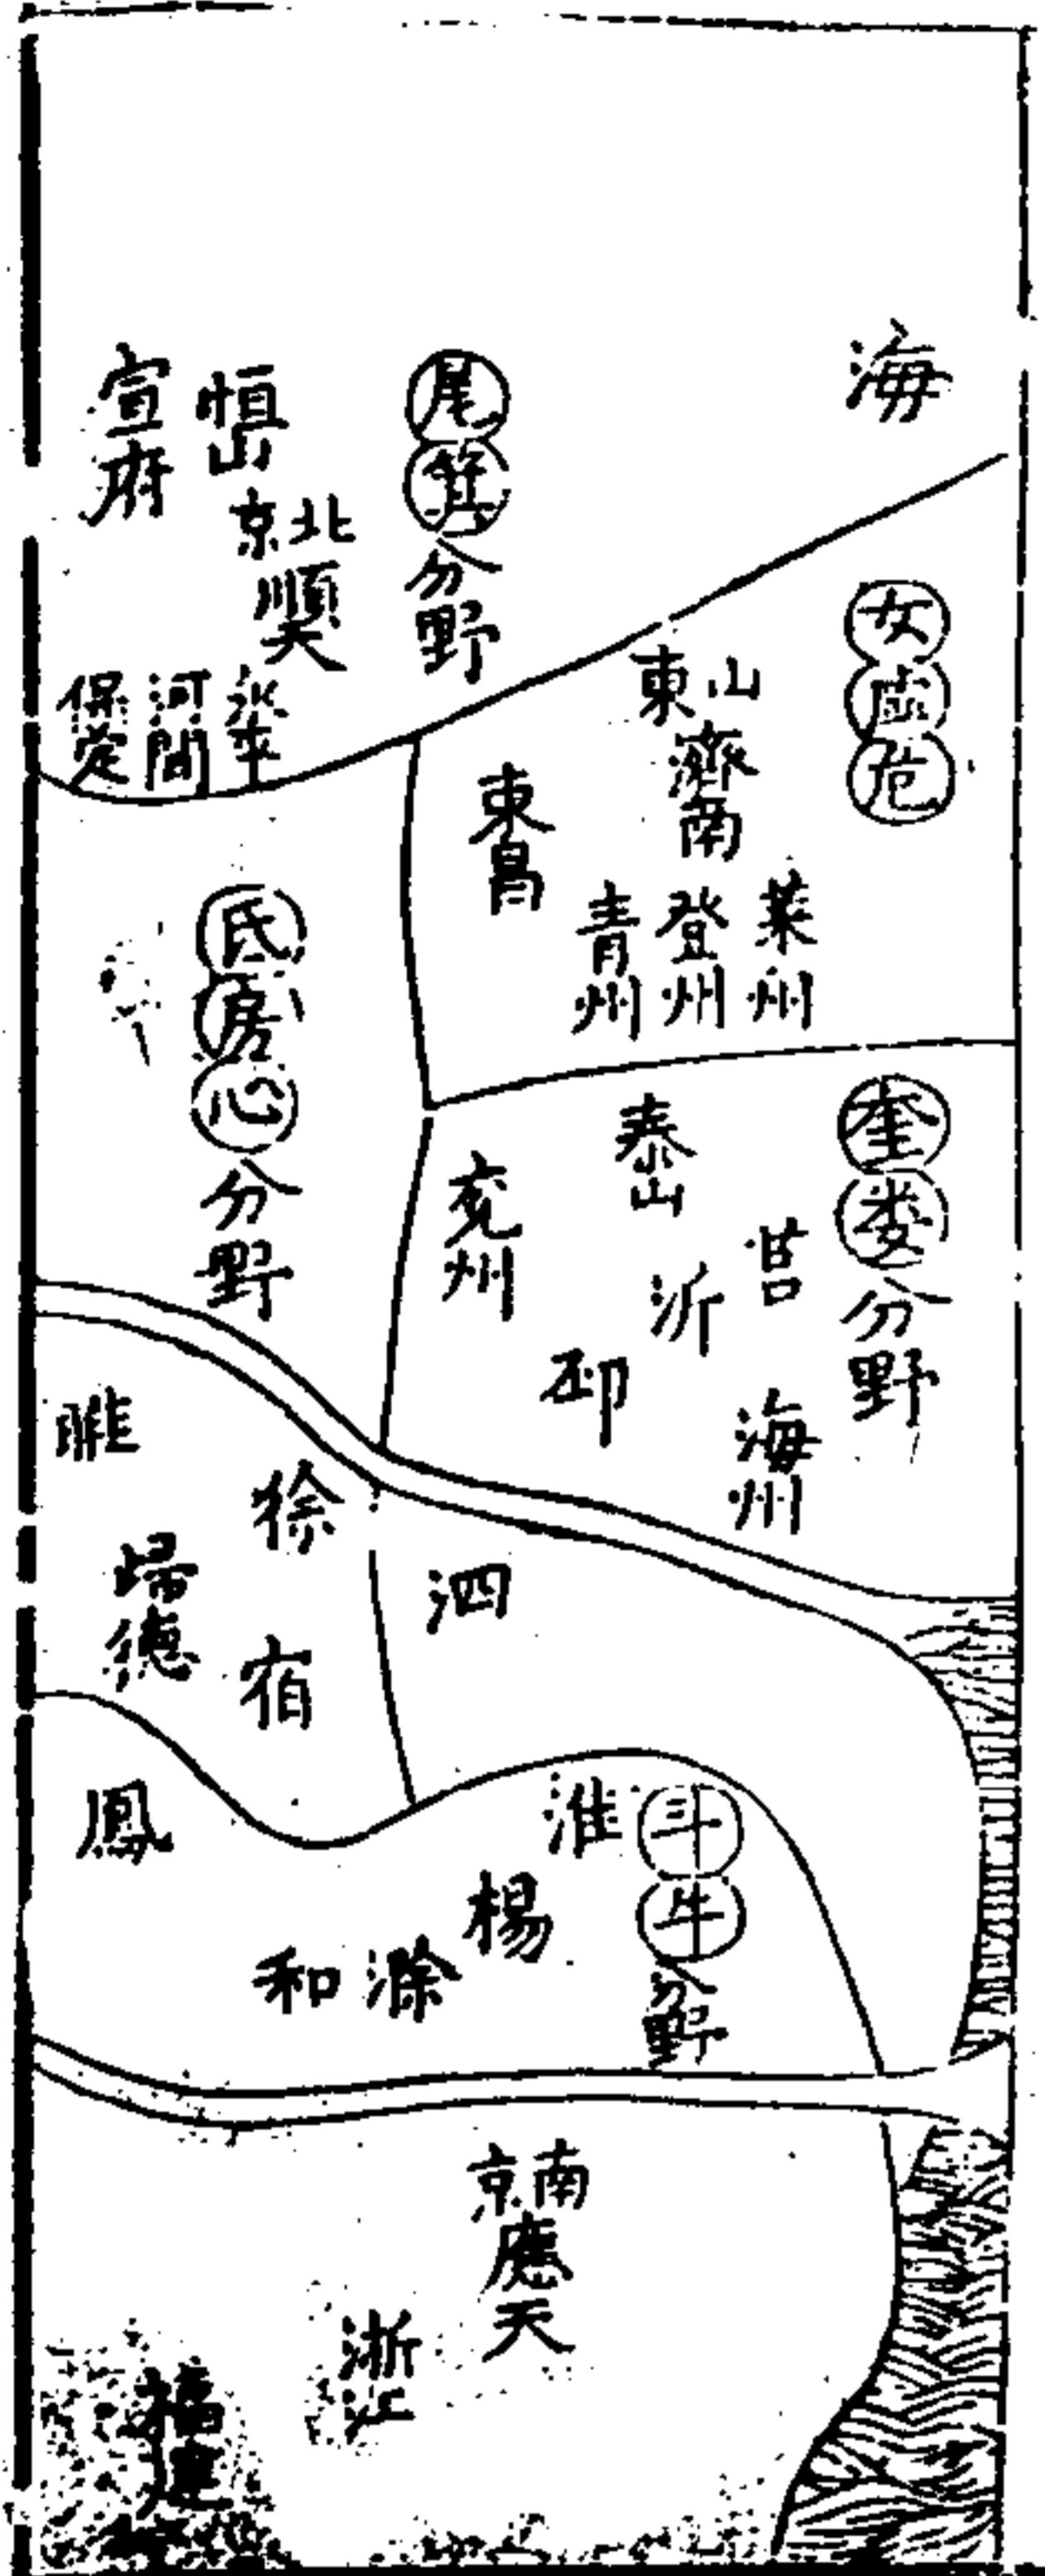 海
尾箕分野
恒山
宣府
北京
順天
永平
河間
保定
女虛危
山東
濟南
東昌
萊州
登州
青州
氐房心分野
奎婁分野
泰山
兗州
莒
沂
邳
海州
睢
徐
泗
歸德
宿
鳳
淮
斗牛分野
楊
滁
和
南京
應天
浙江
福建